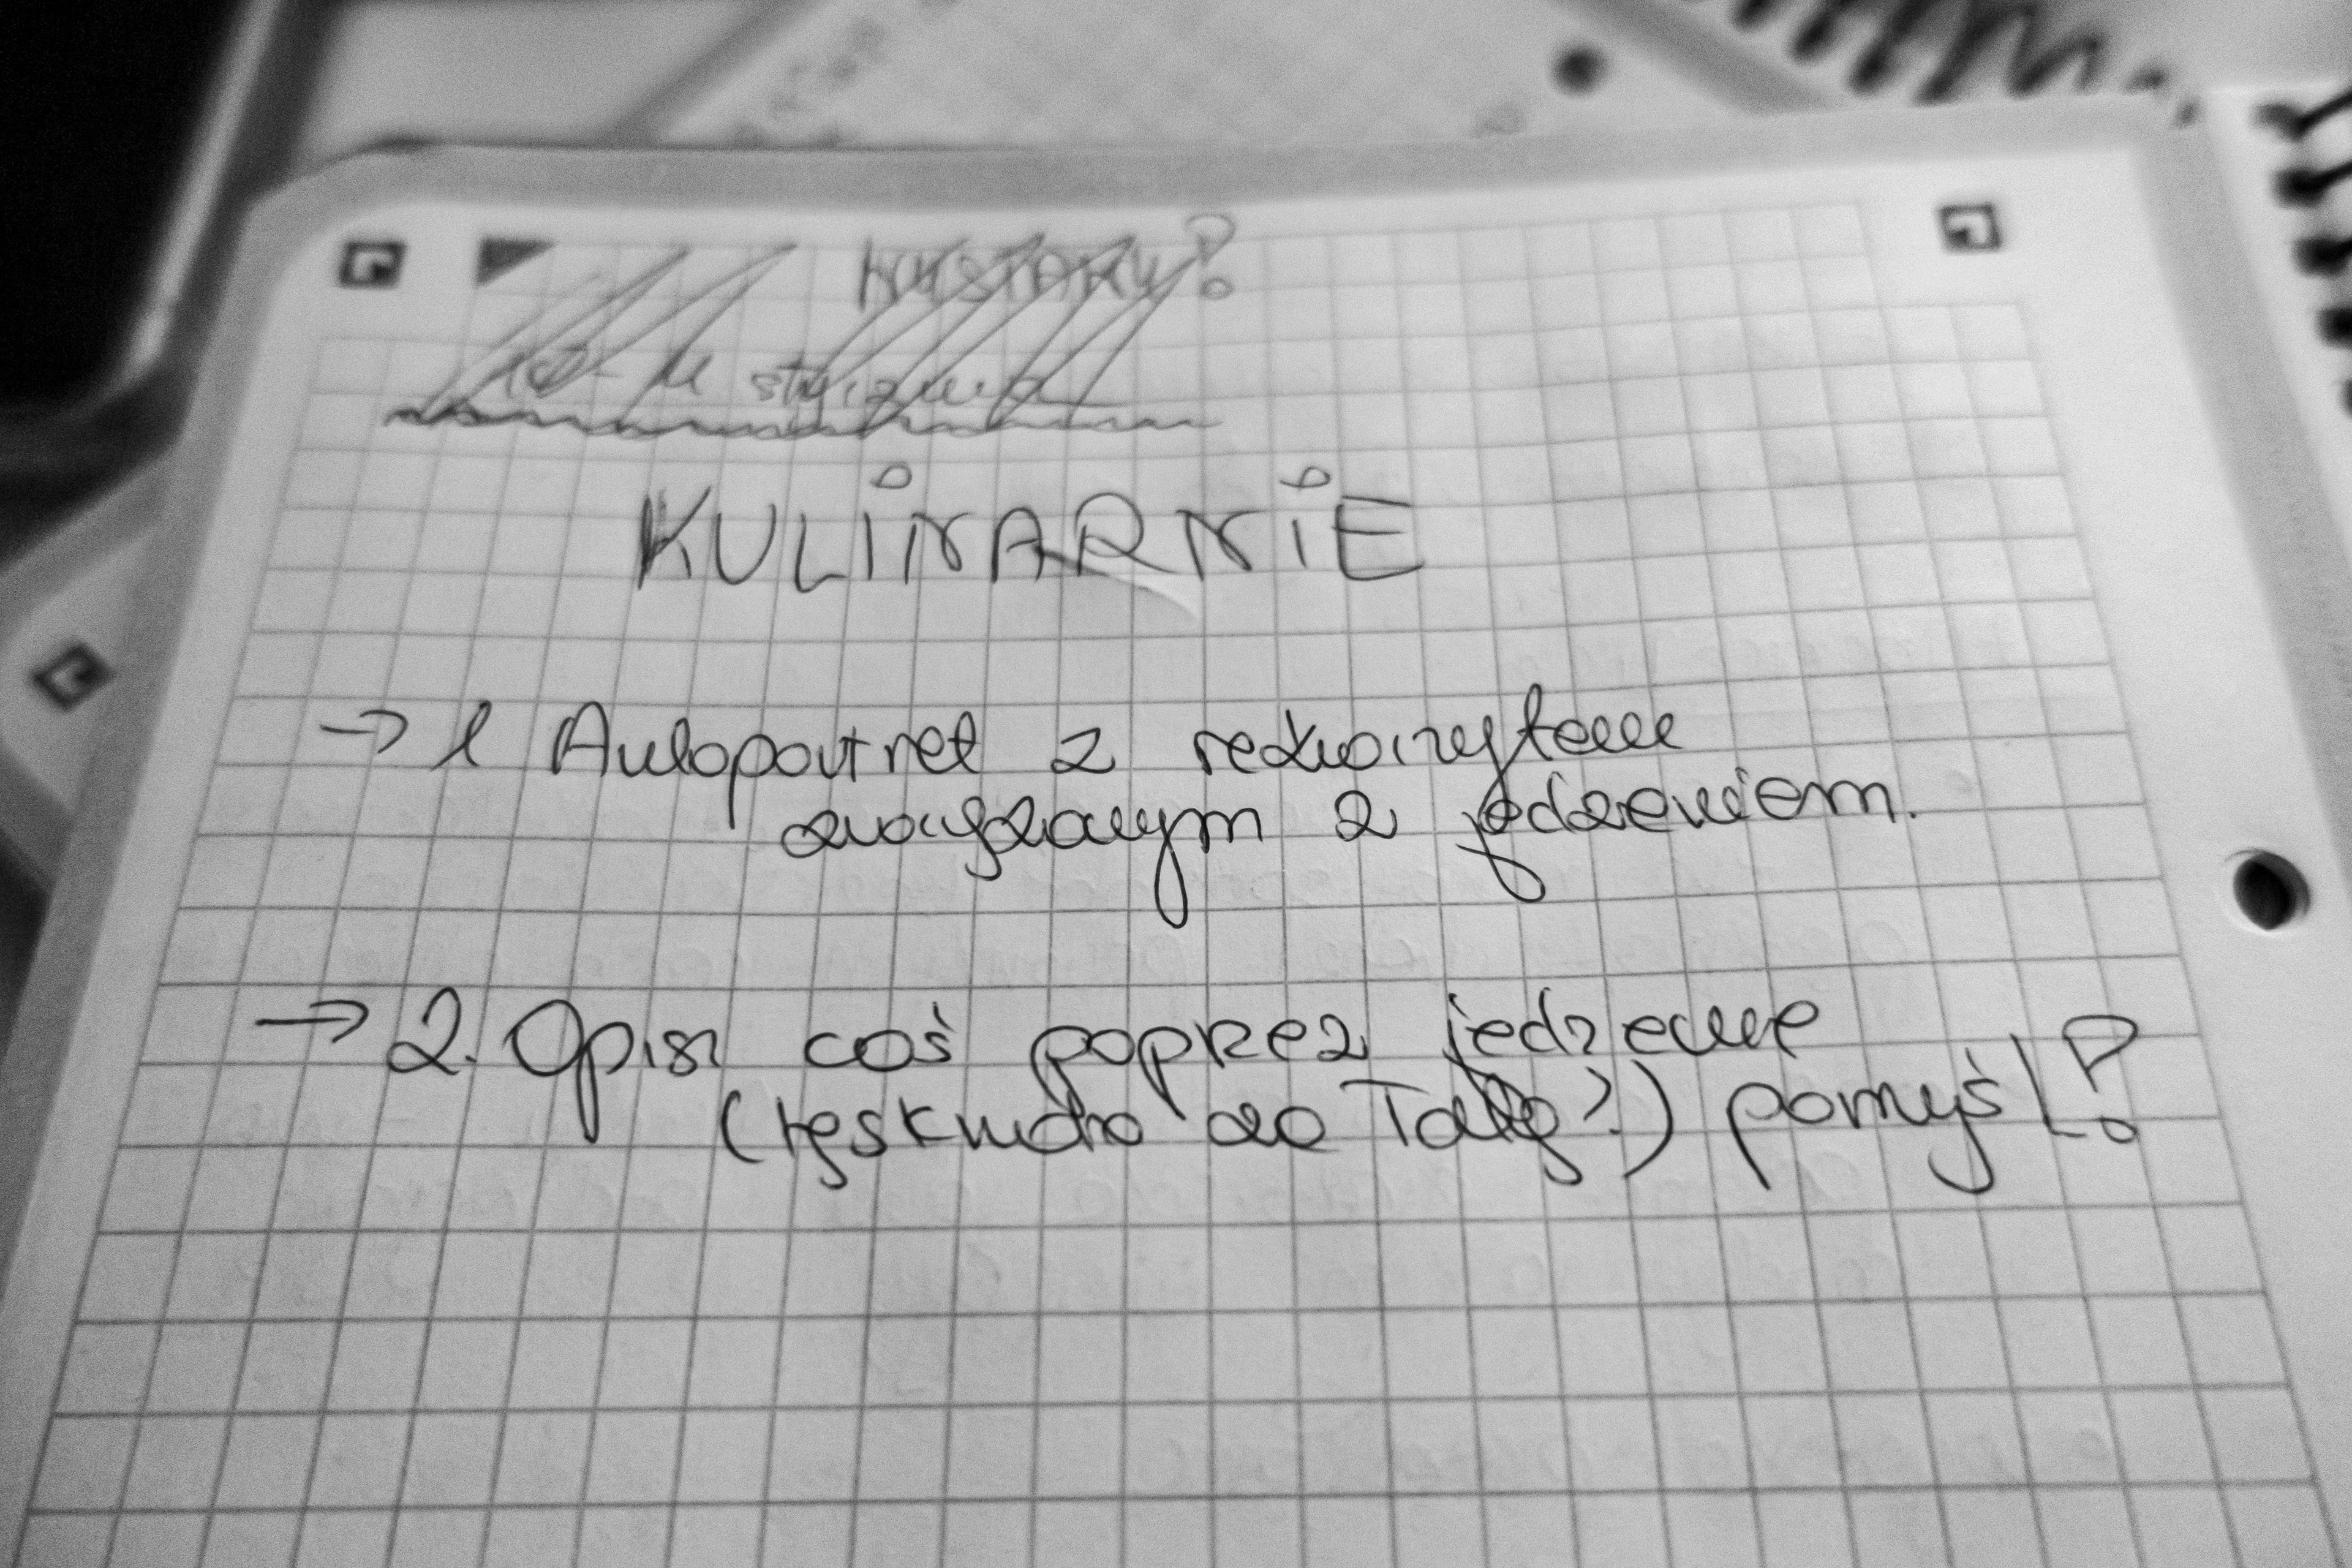 KULINARNIE
→ 1 Autoportret z rekwizytem
związanym z jedzeniem.
→ 2. Opisz coś poprzez jedzenie
(tęsknota do Taty?) pomyśl!?